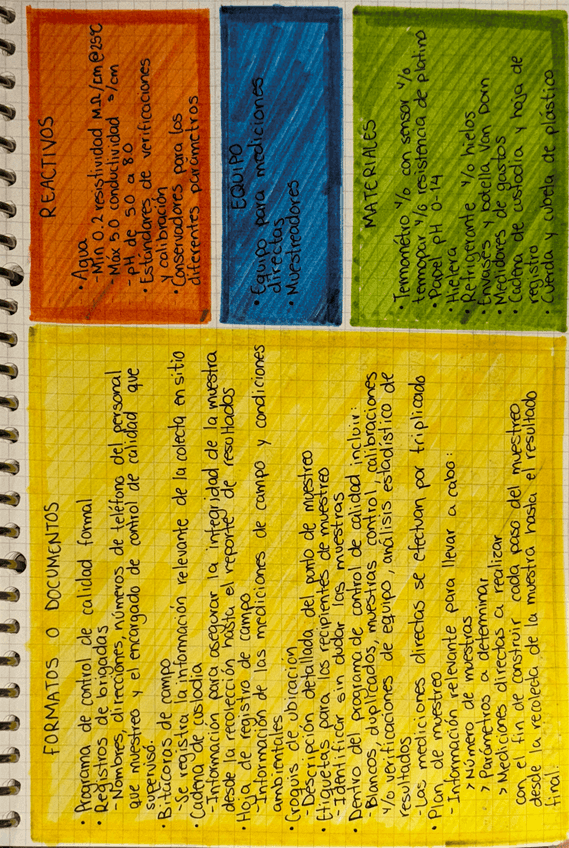 FORMATOS O DOCUMENTOS
• Programa de control de calidad formal
• Registros de brigadas
- Nombres, direcciones, números de teléfono del personal
que muestreo y el encargado de control de calidad que
supervisó.
• Bitácoras de campo
- Se registra la información relevante de la colecta en sitio
• Cadena de custodia
- Información para asegurar la integridad de la muestra
desde la recolección hasta el reporte de resultados
• Hoja de registro de campo
- Información de las mediciones de campo y condiciones
ambientales
• Croquis de ubicación
- Descripción detallada del punto de muestreo
• Etiquetas para los recipientes de muestreo
- Identificar sin dudar las muestras
• Dentro del programa de control de calidad incluir:
- Blancos, duplicados, muestras control, calibraciones
y/o verificaciones de equipo, análisis estadístico de
resultados
- Las mediciones directas se efectuan por triplicado
• Plan de muestreo
- Información relevante para llevar a cabo:
> Número de muestras
> Parámetros a determinar
> Mediciones directas a realizar
con el fin de construir cada paso del muestreo
desde la recolecta de la muestra hasta el resultado
final.
REACTIVOS
• Agua
- Min 0.2 resistividad MΩ/cm@25°C
- Max 5.0 conductividad s/cm
- pH de 5.0 a 8.0
• Estándares de verificaciones
y calibración
• Conservadores para los
diferentes parámetros
EQUIPO
• Equipo para mediciones
directas
• Muestreadores
MATERIALES
• Termómetro y/o con sensor y/o
termopar y/o resistencia de platino
• Papel pH 0-14
• Hielera
• Refrigerante y/o hielos
• Envases y botella Van Dorn
• Medidores de gastos
• Cadena de custodia y hoja de
registro
• Cuerda y cubeta de plástico